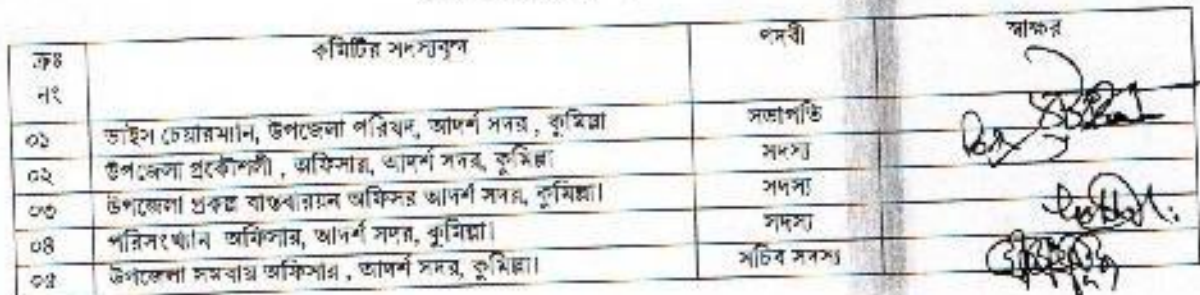 ক্রঃ নং কমিটির সদস্যবৃন্দ পদবী স্বাক্ষর
০১ ভাইস চেয়ারম্যান, উপজেলা পরিষদ, আদর্শ সদর , কুমিল্লা সভাপতি
০২ উপজেলা প্রকৌশলী , অফিসার, আদর্শ সদর, কুমিল্লা সদস্য
০৩ উপজেলা প্রকল্প বাস্তবায়ন অফিসর আদর্শ সদর, কুমিল্লা। সদস্য
০৪ পরিসংখ্যান অফিসার, আদর্শ সদর, কুমিল্লা। সদস্য
০৫ উপজেলা সমবায় অফিসার , আদর্শ সদর, কুমিল্লা। সচিব সদস্য